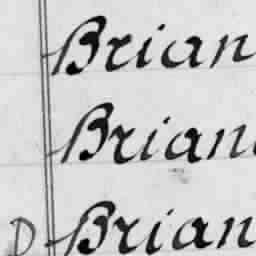 Brian
Brian
D Brian